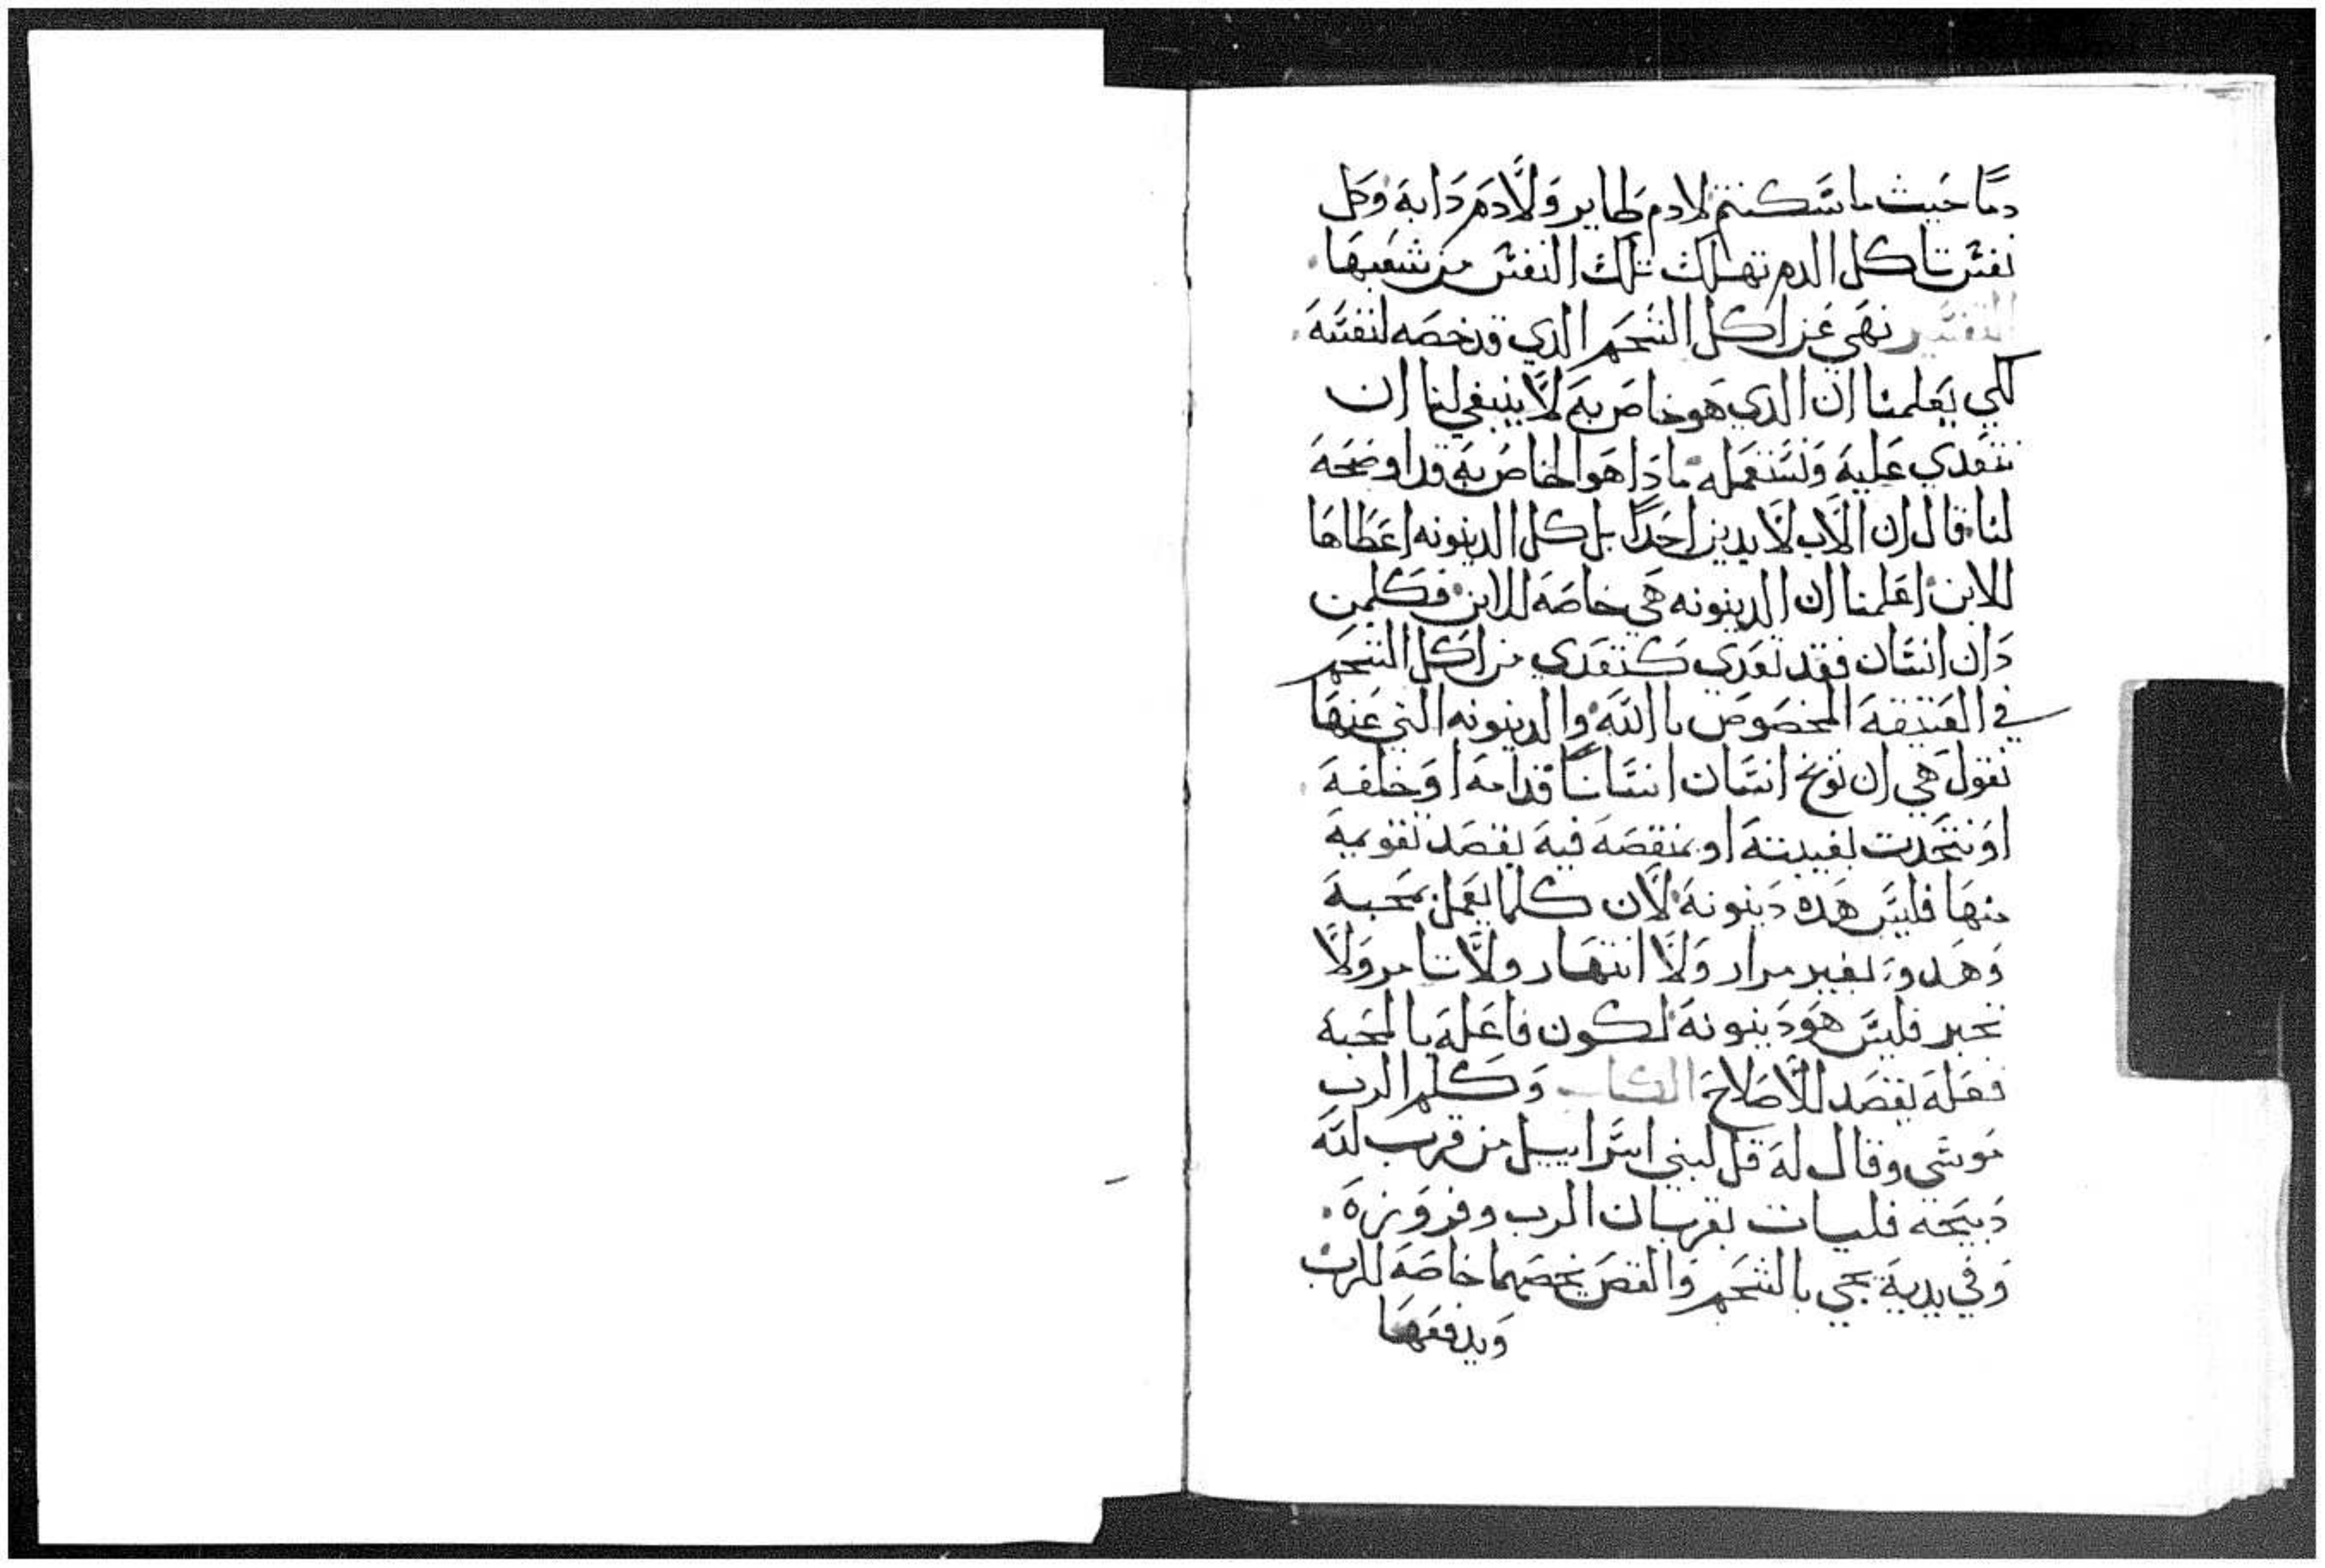 دمًا حَيث ما سَّكنتم لا دم طاير وَلَّا دَم دَابهَ وَكل
نفسَّ تاكل الدم تهلك تلك النفسَّ من شعبهَا
التفسَّير نهَي عَن اكل الشحَم الدي قد خصَه لنفسَّهَ
لكي يَعلمنا ان الدي هَو خاصَ بهَ لَّا ينبغي لنا ان
نتعَدي عَليهَ وَنسَّتعَمله ما دَا هَو الخاصَ بهَ قد اوضحَهَ
لنا قال ان الَّاب لَّا يدين احَدًا بل كل الدينونه اعَطَاهَا
للابن اعَلمنا ان الدينونه هَي خاصَهَ للابن فكلمن
دَان انسَّان فقد تعَدي كتعَدي من اكل الشحَم
في العَتيقهَ المخصَوصَ باللهَ والدينونه التي عَنهَا
نقول هَي ان توبخ انسَّان انسَّانًا قدامهَ اوَ خلفهَ
اوَ تتحَدت بغيبتهَ او بمنقصَهَ فيهَ بقصَد تقويمهَ
منهَا فليسَّ هَده دَينونهَ لَّان كلما يعَمل بمحَبهَ
وَهَدو بغير مرار وَلَّا انتهَار ولَّا تامر وَلَّا
تجبر فليسَّ هَوَ دَينونهَ لكون فاعَلهَ بالمحَبهَ
فعَلهَ بقصَد للَّاصَلاحَ الكتاب وَكلم الرب
موسَّي وقال لهَ قل لبني اسَّراييل من قرب للهَ
دَبيحَه فليات بقربان الرب وفروَزهَ
وَفي يديهَ يجي بالشحَم وَالقصَ يخصَهما خاصَهَ للرب
وَيدفعَهَا